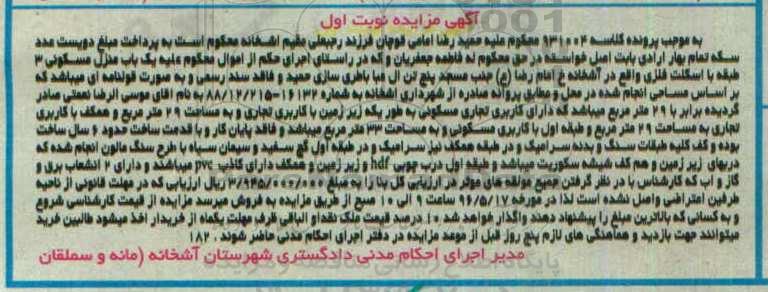 آگهی مزایده نوبت اول
به موجب پرونده کلاسه ۹۳۱۰۰۴ محکوم علیه حمید رضا امامی قوچان فرزند رجبعلی مقیم اشخانه محکوم است به پرداخت مبلغ دویست عدد
سکه تمام بهار ازادی بابت اصل خواسته در حق محکوم له فاطمه جعفریان و که در راستای اجرای حکم از اموال محکوم علیه یک باب منزل مسکونی ۳
طبقه با اسکلت فلزی واقع در آشخانه خ امام رضا (ع) جنب مسجد پنج تن ال عبا باطری سازی حمید و فاقد سند رسمی و به صورت قولنامه ای میباشد که
بر اساس مساحی انجام شده در محل و مطابق پروانه صادره از شهرداری اشخانه به شماره ۱۶۱۳۲-۸۸/۱۲/۲۱۵ به نام اقای موسی الرضا نعمتی صادر
گردیده برابر با ۲۹ متر مربع میباشد که دارای کاربری تجاری مسکونی به طور یکه زیر زمین با کاربری تجاری و به مساحت ۲۹ متر مربع و همکف با کاربری
تجاری به مساحت ۲۹ متر مربع و طبقه اول با کاربری مسکونی و به مساحت ۳۳ متر مربع میباشد و فاقد پایان کار و با قدمت ساخت حدود ۶ سال ساخت
بوده و کف کلیه طبقات سنگ و بدنه سرامیک و در طبقه همکف نیز سرامیک و در طبقه اول گچ سفید و سیمان سیاه با طرح سنگ مالون انجام شده که
دربهای زیر زمین و هم کف شیشه سکوریت میباشد و طبقه اول درب چوبی hdf و زیر زمین و همکف دارای کاذب pvc میباشند و دارای ۲ انشعاب برق و
گاز و اب که کارشناس با در نظر گرفتن جمیع مولفه های موثر در ارزیابی کل بنا را به مبلغ ۳/۹۴۵/۰۰۰/۰۰۰ ریال ارزیابی که در مهلت قانونی از ناحیه
طرفین اعتراضی واصل نشده است لذا در مورخه ۹۶/۵/۱۷ ساعت ۹ الی ۱۰ صبح از طریق مزایده به فروش میرسد مزایده از قیمت کارشناسی شروع
و به کسانی که بالاترین مبلغ را پیشنهاد دهند واگذار خواهد شد ۱۰ درصد قیمت ملک نقدا و الباقی ظرف مهلت یکماه از خریدار اخذ میشود طالبین خرید
میتوانند جهت بازدید و هماهنگی های لازم پنج روز قبل از موعد مزایده در دفتر اجرای احکام مدنی حاضر شوند . ۱۸۲
مدیر اجرای احکام مدنی دادگستری شهرستان آشخانه (مانه و سملقان